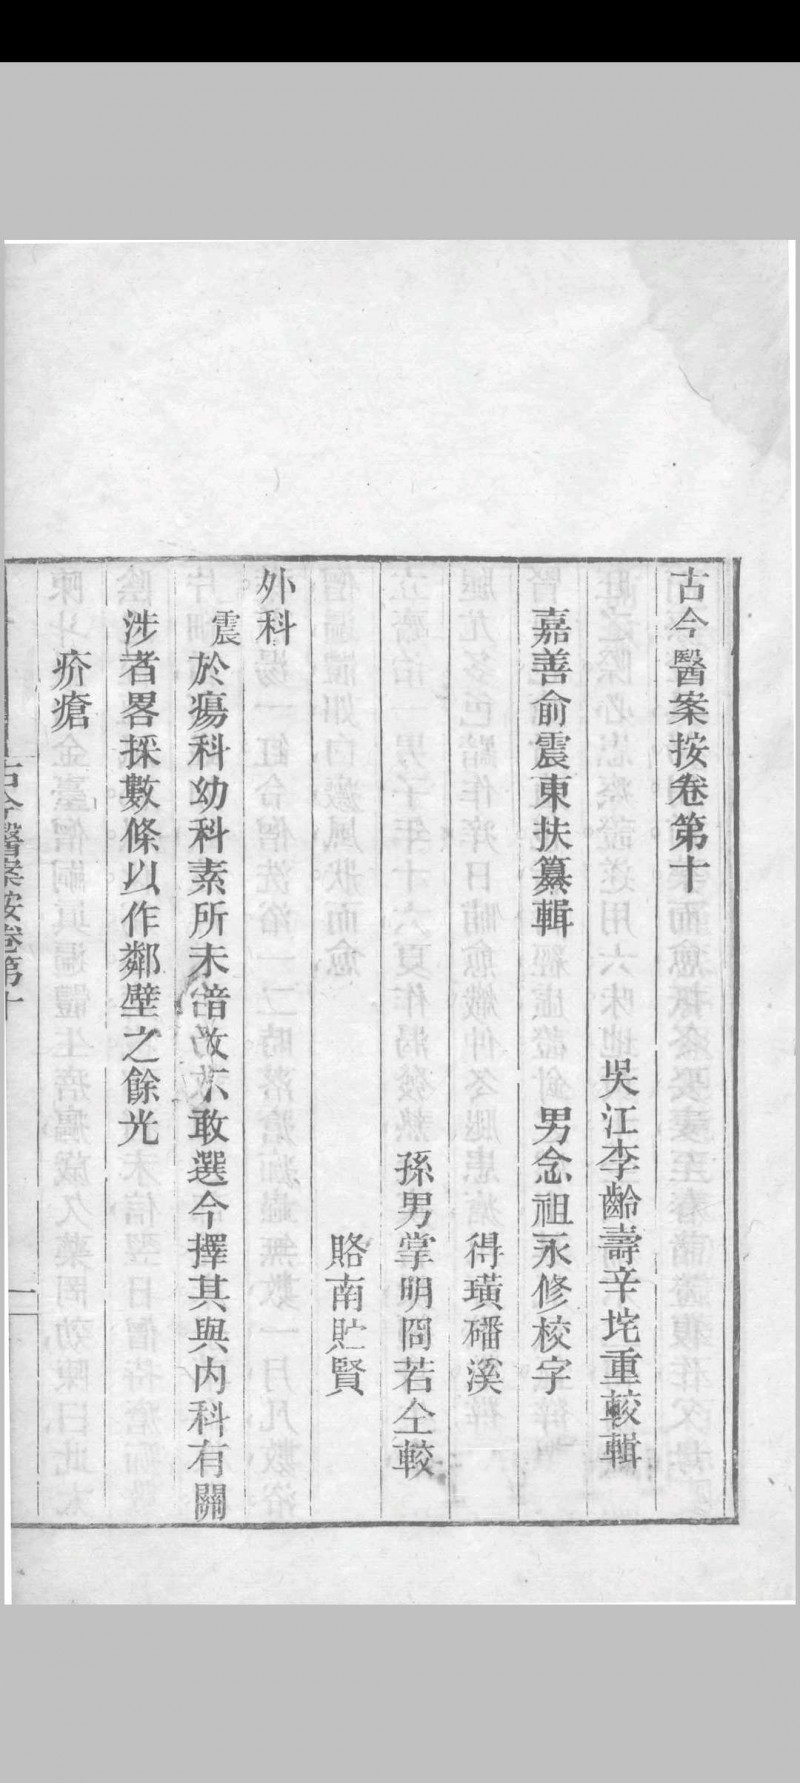 古今醫案按卷第十
吳江李齡壽辛垞重較輯
嘉善俞震東扶纂輯
男念祖永修校字
得璜磻溪
孫男掌明冏若仝較
賂南貯賢
外科
震於瘍科幼科素所未諳故不敢選今擇其與內科有關
涉者畧採數條以作鄰壁之餘光
疥瘡
古今醫案按卷第十
一